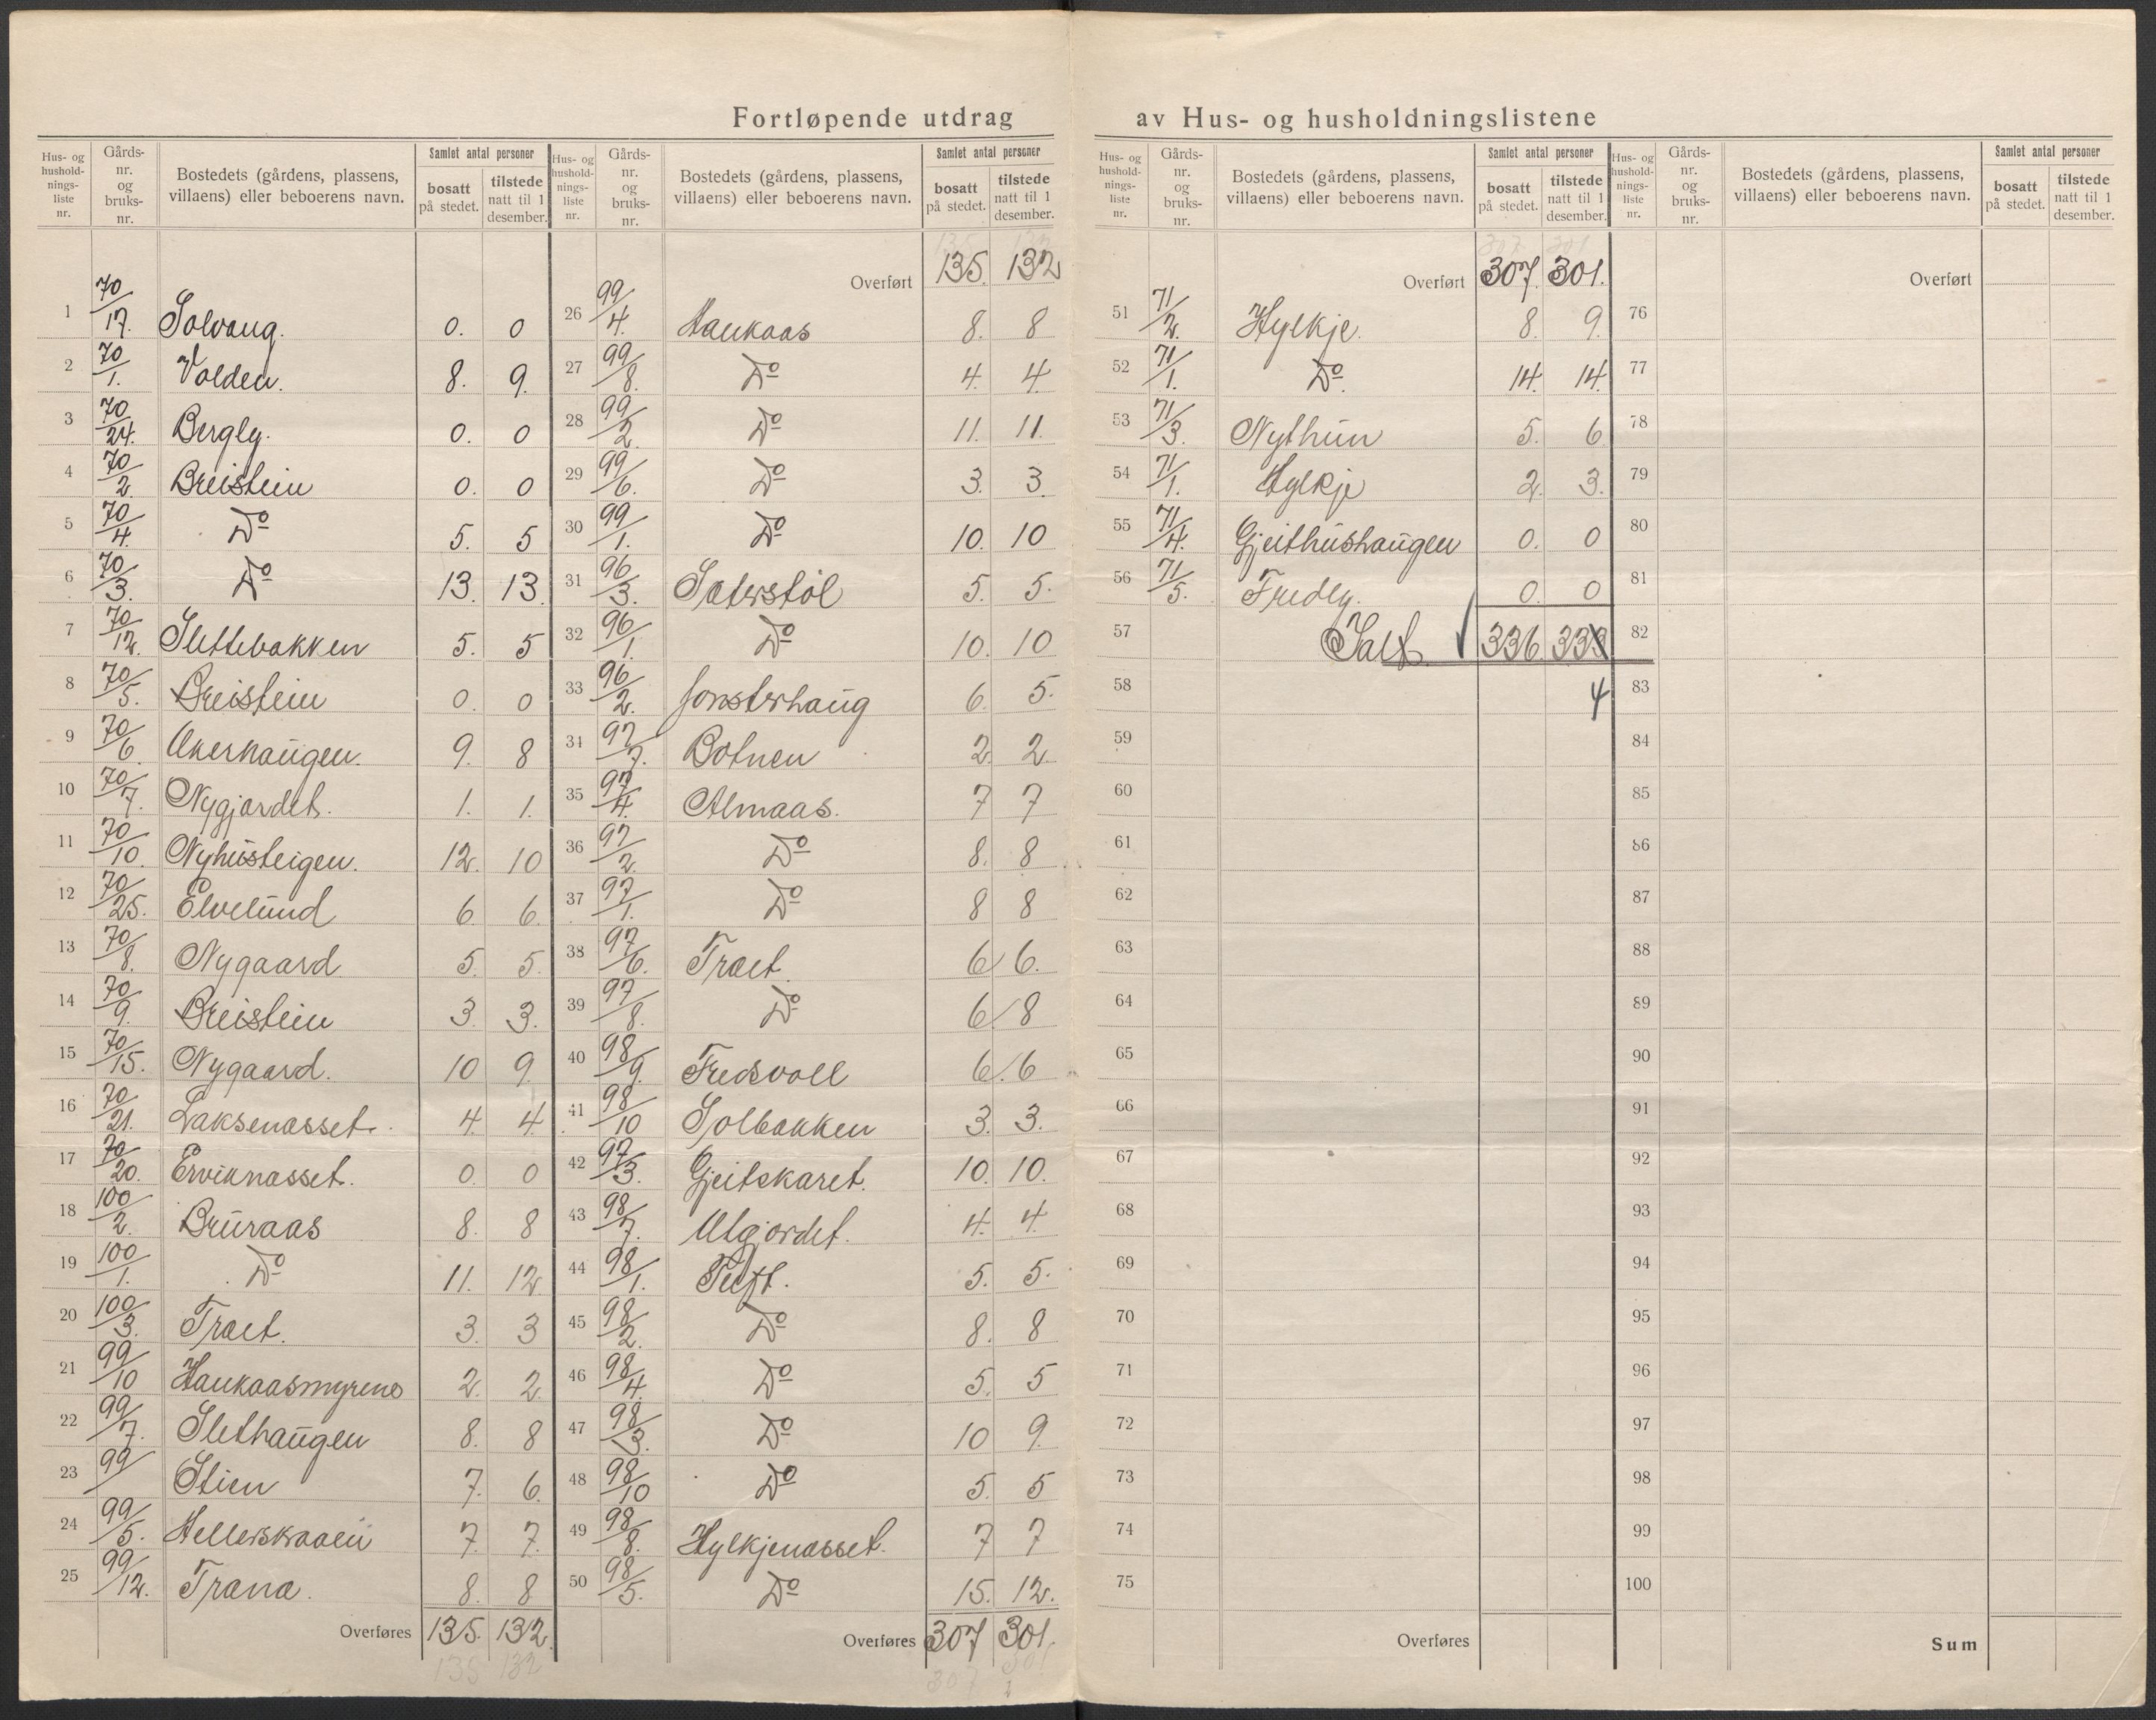 Fortløpende utdrag av Hus- og husholdningslistene
Hus- og husholdningsliste nr. | Gårds-nr. og bruks-nr. | Bostedets (gårdens, plassens, villaens) eller beboerens navn. | Samlet antal personer | bosatt på stedet. | tilstede natt til 1 desember.
1 70/17. Solvang. 0. 0
2 70/1. Valden. 8. 9.
3 70/24. Bergly. 0. 0
4 70/2. Breistein 0. 0
5 70/4. Do 5. 5
6 70/3. Do 13. 13.
7 70/12. Slettebakken 5. 5
8 70/5. Breistein 0. 0
9 70/6. Akerhaugen. 9. 8
10 70/7. Nygjardet. 1. 1.
11 70/10. Nyhusteigen. 12. 10
12 70/25. Elvelund 6. 6.
13 70/8. Nygaard 5. 5.
14 70/9. Breistein 3. 3.
15 70/15. Nygaard. 10 9.
16 70/21. Laksenæsset. 4. 4.
17 70/20. Erviknæsset. 0. 0
18 100/2. Bruraas 8. 8
19 100/1. Do 11. 12
20 100/3. Træet. 3. 3
21 99/10 Haukaasmyrene 2. 2.
22 99/7. Slethaugen 8. 8
23 99/ Stien 7. 6.
24 99/5. Hellerskaalen 7. 7.
25 99/12. Trana. 8. 8
Overføres 135. 132.
135 132
Hus- og husholdningsliste nr. | Gårds-nr. og bruks-nr. | Bostedets (gårdens, plassens, villaens) eller beboerens navn. | Samlet antal personer | bosatt på stedet. | tilstede natt til 1 desember.
Overført 135. 132
26 99/4. Haukaas 8. 8
27 99/8. Do 4. 4.
28 99/2. Do 11. 11.
29 99/6. Do 3. 3.
30 99/1. Do 10. 10
31 96/3. Sæterstøl 5. 5.
32 96/1. Do 10. 10
33 96/2. Jonsterhaug 6. 5.
34 97/7. Botnen 2. 2
35 97/4. Almaas. 7 7
36 97/2. Do 8. 8
37 97/1. Do 8 8
38 97/6. Træet. 6 6.
39 97/8. Do 6 8
40 98/9. Fredsvoll 6. 6
41 98/10 Solbakken 3. 3.
42 97/3. Gjeitskaret. 10. 10.
43 98/7. Utgjordet. 4. 4.
44 98/1. Tuft. 5. 5.
45 98/2. Do 8. 8
46 98/4. Do 5. 5
47 98/3. Do 10 9.
48 98/10 Do 5. 5
49 98/8. Hylkjenæsset. 7 7
50 98/5. Do 15. 12.
Overføres 307 301.
307 301
Hus- og husholdningsliste nr. | Gårds-nr. og bruks-nr. | Bostedets (gårdens, plassens, villaens) eller beboerens navn. | Samlet antal personer | bosatt på stedet. | tilstede natt til 1 desember.
307 301
Overført 307. 301.
51 71/2. Hylkje. 8. 9.
52 71/1. Do. 14. 14.
53 71/3. Nythun 5. 6
54 71/1. Hylkje 2. 3.
55 71/4. Gjeithushaugen 0. 0
56 71/5. Fredly. 0. 0
57 Talt 336. 333
58 4
59
60
61
62
63
64
65
66
67
68
69
70
71
72
73
74
75
Overføres
Hus- og husholdningsliste nr. | Gårds-nr. og bruks-nr. | Bostedets (gårdens, plassens, villaens) eller beboerens navn. | Samlet antal personer | bosatt på stedet. | tilstede natt til 1 desember.
Overført
76
77
78
79
80
81
82
83
84
85
86
87
88
89
90
91
92
93
94
95
96
97
98
99
100
Sum